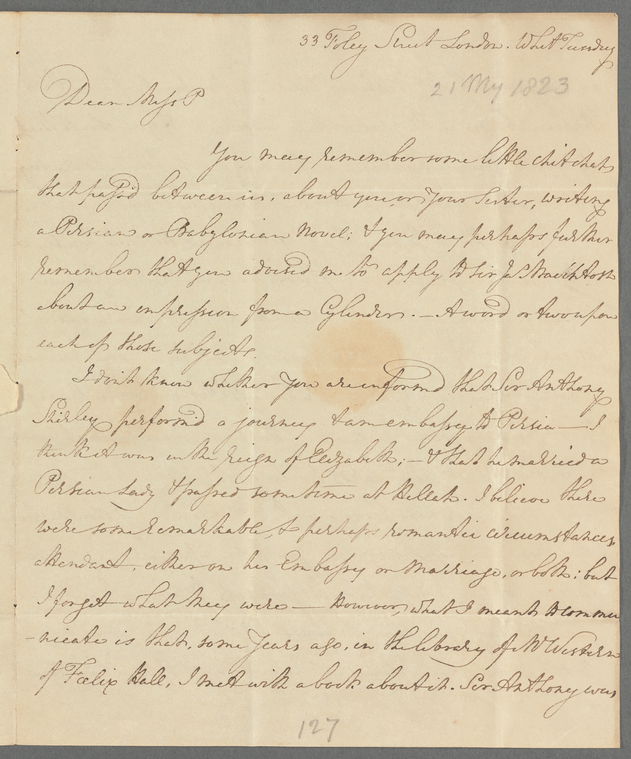 33 Foley Street London. Whit Tuesday
21 My 1823
Dear Miss P
You may remember some little chitchat
that pass'd between us, about you, or your Sister, writing
a Persian or Babylonian Novel; & you may perhaps further
remember that you advised me to apply to Sir Jas Mackintosh
about an impression from a Cylinder. — A word or two upon
each of those subjects.
I don't know whether you are inform'd that Sir Anthony
Shirley perform'd a journey & an embassy to Persia — I
think it was in the reign of Elizabeth; — & that he married a
Persian Lady & passed some time at Hillah. I believe there
were some remarkable, & perhaps romantic circumstances,
attendant, either on his Embassy or Marriage, or both; but
I forget what they were — However, what I meant to commu
-nicate is that, some years ago, in the library of Mr Western
of Fœlix Hall, I met with a book about it. Sir Anthony was
127